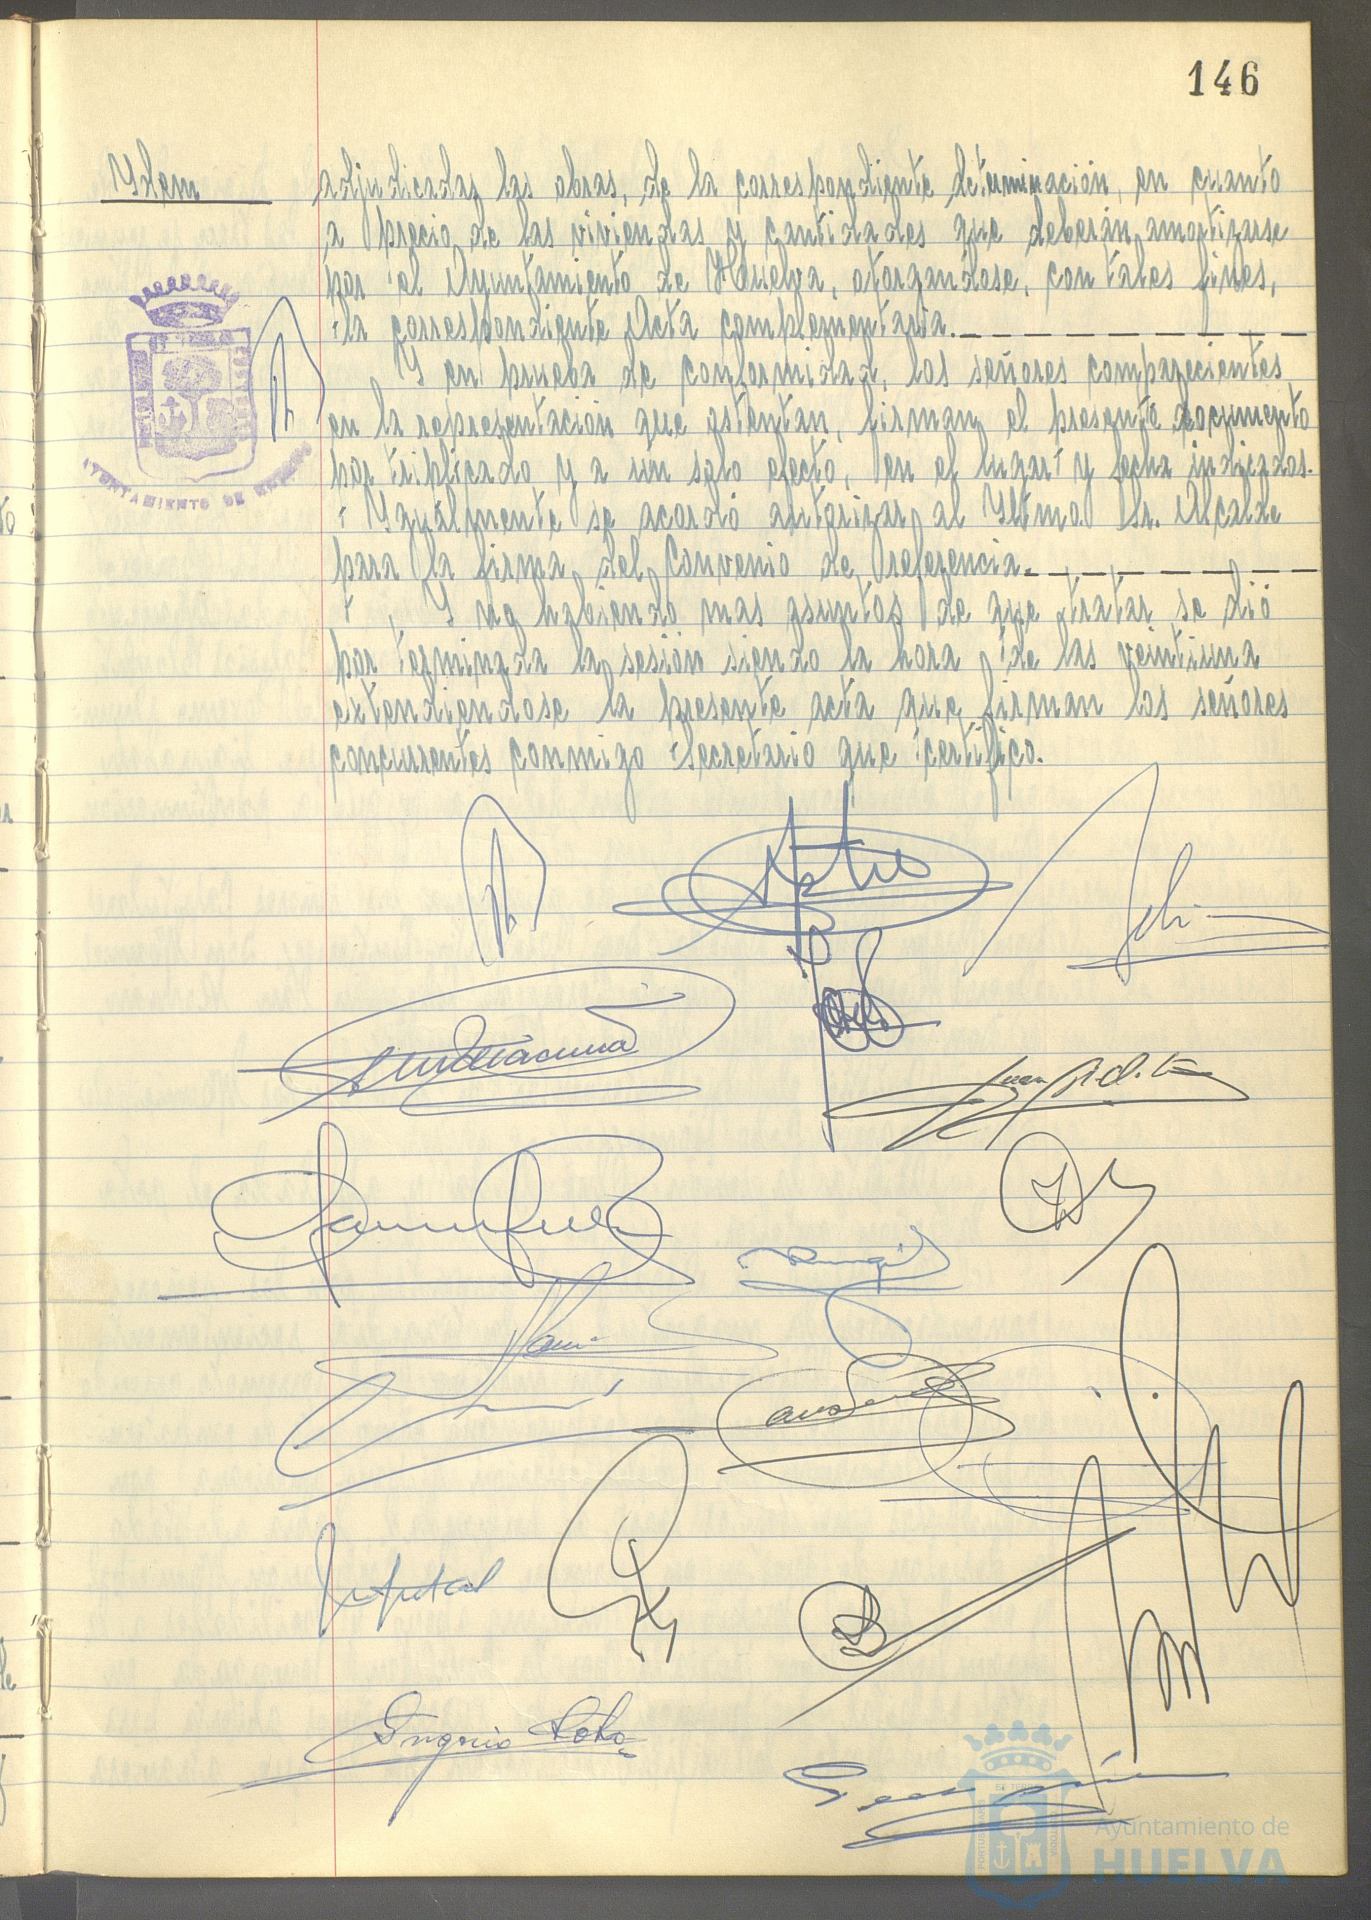 146
Ydem
adjudicadas las obras, de la correspondiente determinación, en cuanto
a precio de las viviendas y cantidades que deberán amortizarse
por el Ayuntamiento de Huelva, otorgandose, con tales fines,
la correspondiente Acta complementaria.
Y en prueba de conformidad, los señores comparecientes
en la representación que ostentan, firman el presente documento
por triplicado y a un solo efecto, en el lugar y fecha indicados.
Ygualmente se acordó autorizar al Yltmo. Sr. Alcalde
para la firma del Convenio de referencia.
Y no habiendo mas asuntos de que tratar se dió
por terminada la sesión siendo la hora de las veintiuna
extendiendose la presente acta que firman los señores
concurrentes conmigo Secretario que certifico.
AYUNTAMIENTO DE HUELVA
Ayuntamiento de
HUELVA